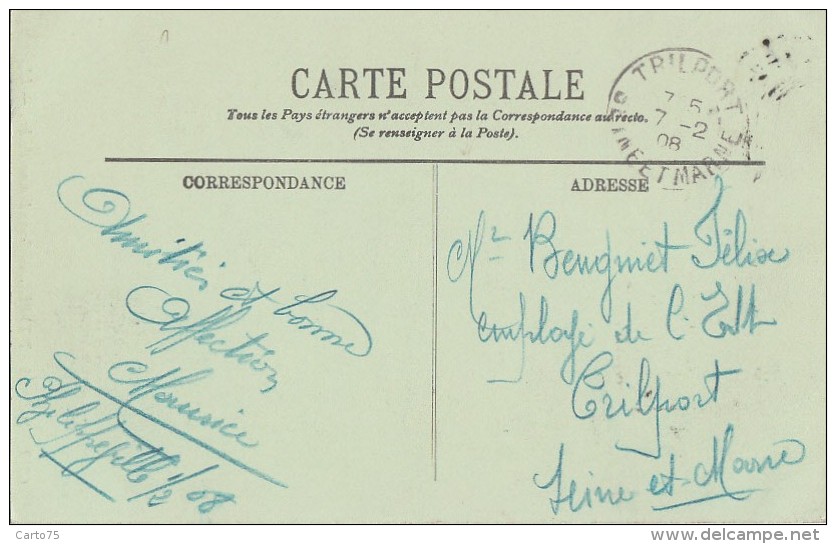 CARTE POSTALE
Tous les Pays étrangers n'acceptent pas la Correspondance au recto.
(Se renseigner à la Poste).
TRILPORT
7 5
7 -2
08
SEINE ET MARNE
CORRESPONDANCE
ADRESSE
Amitiés et bonne
Affection
Maurice
Philippeville 1/2 08
Mr Benguiet Félix
employé de l'Est
Trilport
Seine et Marne
Carto75
delcampe.net